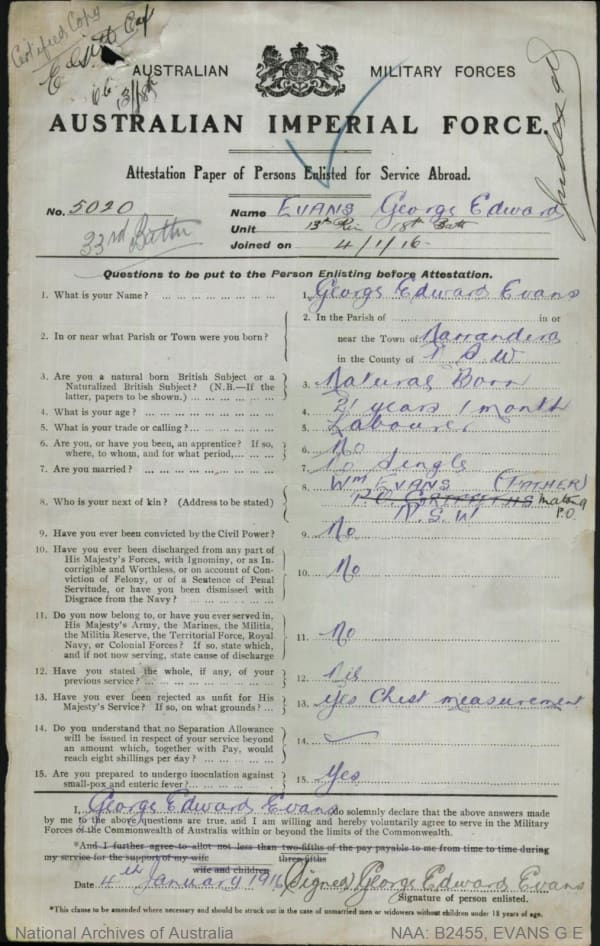 Certified Copy
AUSTRALIAN MILITARY FORCES
AUSTRALIAN IMPERIAL FORCE.
Attestation Paper of Persons Enlisted for Service Abroad.
No. 5020 Name EVANS George Edward
33rd Battn Unit 13th Rein 18th Batt
Joined on 4/1/16
Questions to be put to the Person Enlisting before Attestation.
1. What is your Name? ... 1. George Edward Evans
2. In or near what Parish or Town were you born? ... 2. In the Parish of ... in or
near the Town of Narrandera
in the County of N S W
3. Are you a natural born British Subject or a
Naturalized British Subject? (N.B.—If the
latter, papers to be shown.) ... 3. Natural Born
4. What is your age? ... 4. 21 years 1 month
5. What is your trade or calling? ... 5. Labourer
6. Are you, or have you been, an apprentice? If so,
where, to whom, and for what period, ... 6. No
7. Are you married? ... 7. No Single
8. Who is your next of kin? (Address to be stated) 8. Wm EVANS (FATHER)
P.O. GRIFFITHS
P.O.
N.S.W
9. Have you ever been convicted by the Civil Power? 9. No
10. Have you ever been discharged from any part of
His Majesty's Forces, with Ignominy, or as In-
corrigible and Worthless, or on account of Con-
viction of Felony, or of a Sentence of Penal
Servitude, or have you been dismissed with
Disgrace from the Navy? ... 10. No
11. Do you now belong to, or have you ever served in,
His Majesty's Army, the Marines, the Militia,
the Militia Reserve, the Territorial Force, Royal
Navy, or Colonial Forces? If so, state which,
and if not now serving, state cause of discharge 11. No
12. Have you stated the whole, if any, of your
previous service? ... 12.
13. Have you ever been rejected as unfit for His
Majesty's Service? If so, on what grounds? ... 13. Yes Chest measurement
14. Do you understand that no Separation Allowance
will be issued in respect of your service beyond
an amount which, together with Pay, would
reach eight shillings per day? ... 14.
15. Are you prepared to undergo inoculation against
small-pox and enteric fever? ... 15. Yes
I, George Edward Evans do solemnly declare that the above answers made
by me to the above questions are true, and I am willing and hereby voluntarily agree to serve in the Military
Forces of the Commonwealth of Australia within or beyond the limits of the Commonwealth.
*And I further agree to allot not less than two-fifths of the pay payable to me from time to time during
three-fifths
my service for the support of my wife
wife and children
Date 4th January 1916 (Signed) George Edward Evans
Signature of person enlisted.
*This clause to be amended where necessary and should be struck out in the case of unmarried men or widowers without children under 18 years of age.
National Archives of Australia NAA: B2455, EVANS G E